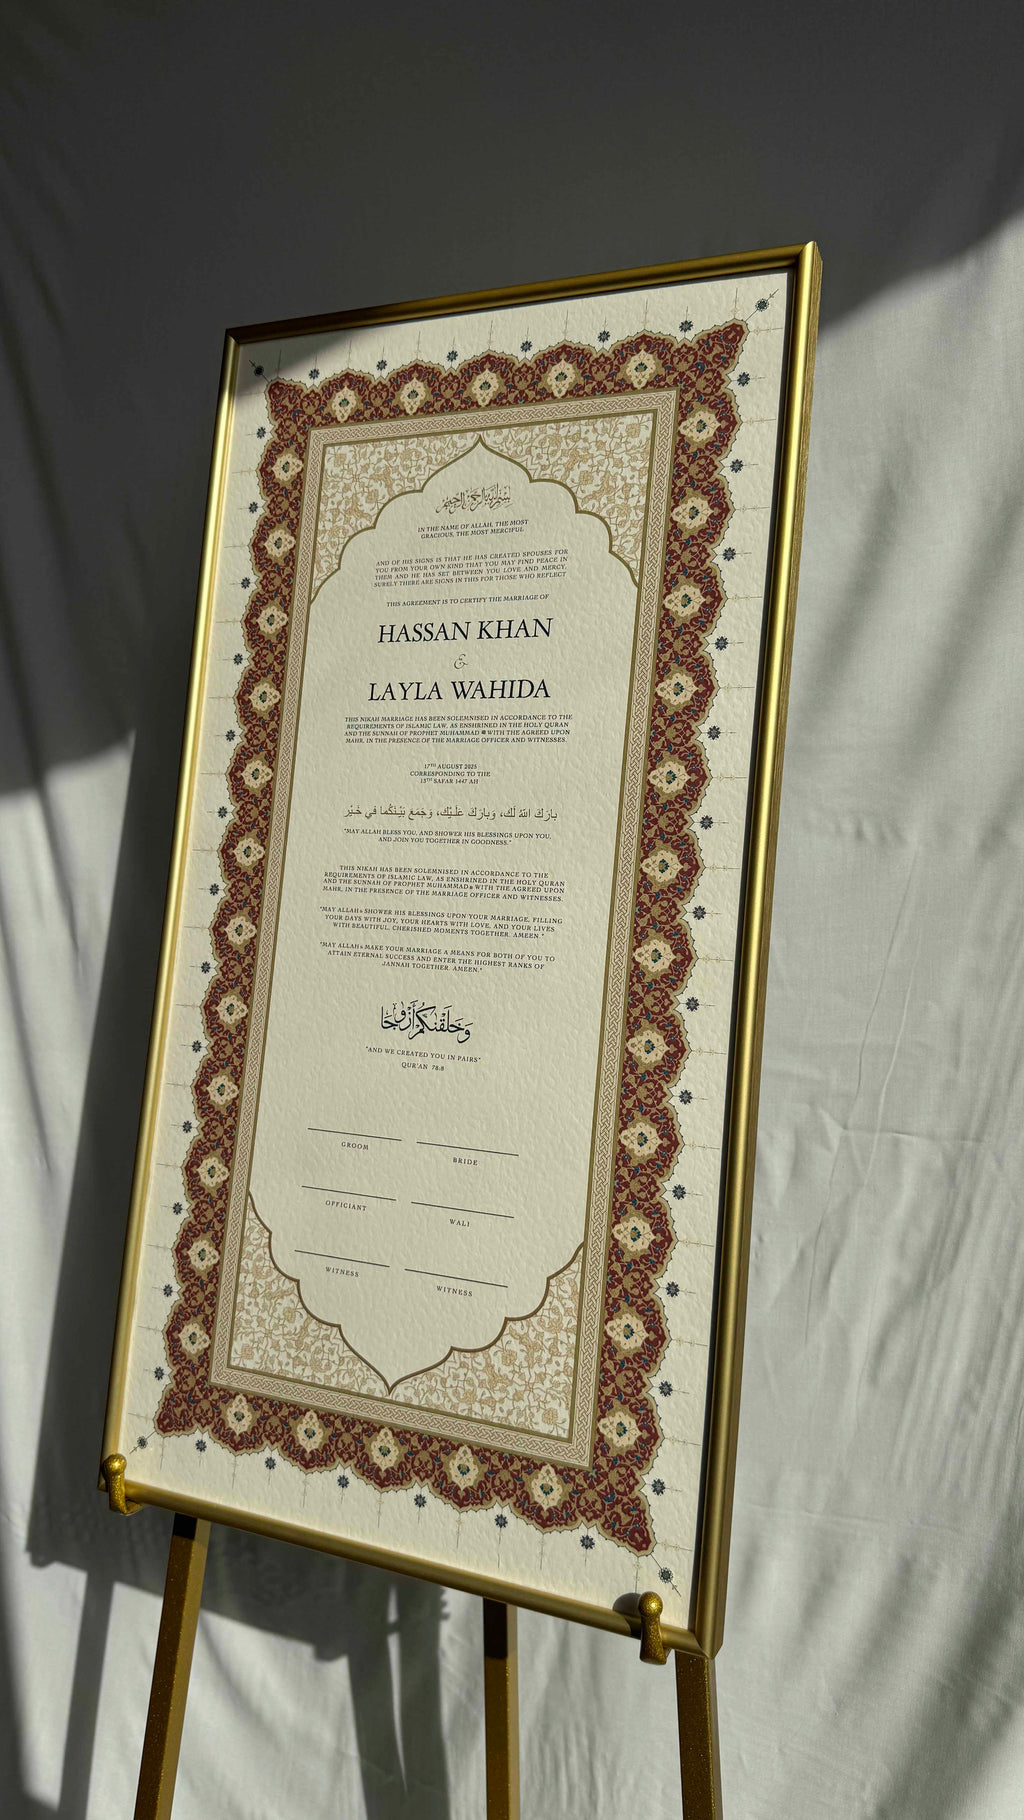 بسم الله الرحمن الرحيم
IN THE NAME OF ALLAH, THE MOST
GRACIOUS, THE MOST MERCIFUL
AND OF HIS SIGNS IS THAT HE HAS CREATED SPOUSES FOR
YOU FROM YOUR OWN KIND THAT YOU MAY FIND PEACE IN
THEM AND HE HAS SET BETWEEN YOU LOVE AND MERCY.
SURELY THERE ARE SIGNS IN THIS FOR THOSE WHO REFLECT
THIS AGREEMENT IS TO CERTIFY THE MARRIAGE OF
HASSAN KHAN
&
LAYLA WAHIDA
THIS NIKAH MARRIAGE HAS BEEN SOLEMNISED IN ACCORDANCE TO THE
REQUIREMENTS OF ISLAMIC LAW, AS ENSHRINED IN THE HOLY QURAN
AND THE SUNNAH OF PROPHET MUHAMMAD ﷺ WITH THE AGREED UPON
MAHR, IN THE PRESENCE OF THE MARRIAGE OFFICER AND WITNESSES.
17TH AUGUST 2025
CORRESPONDING TO THE
15TH SAFAR 1447 AH
بارَكَ اللهُ لَكَ، وَبارَكَ عَلَـيْكَ، وَجَمَعَ بَيْـنَكُما في خَـيْر
"MAY ALLAH BLESS YOU, AND SHOWER HIS BLESSINGS UPON YOU,
AND JOIN YOU TOGETHER IN GOODNESS."
THIS NIKAH HAS BEEN SOLEMNISED IN ACCORDANCE TO THE
REQUIREMENTS OF ISLAMIC LAW, AS ENSHRINED IN THE HOLY QURAN
AND THE SUNNAH OF PROPHET MUHAMMAD ﷺ WITH THE AGREED UPON
MAHR, IN THE PRESENCE OF THE MARRIAGE OFFICER AND WITNESSES.
"MAY ALLAH SHOWER HIS BLESSINGS UPON YOUR MARRIAGE, FILLING
YOUR DAYS WITH JOY, YOUR HEARTS WITH LOVE, AND YOUR LIVES
WITH BEAUTIFUL, CHERISHED MOMENTS TOGETHER. AMEEN."
"MAY ALLAH MAKE YOUR MARRIAGE A MEANS FOR BOTH OF YOU TO
ATTAIN ETERNAL SUCCESS AND ENTER THE HIGHEST RANKS OF
JANNAH TOGETHER. AMEEN."
وَخَلَقْنَكُمْ أَزْوَجًا
"AND WE CREATED YOU IN PAIRS"
QUR'AN 78:8
GROOM
BRIDE
OFFICIANT
WALI
WITNESS
WITNESS